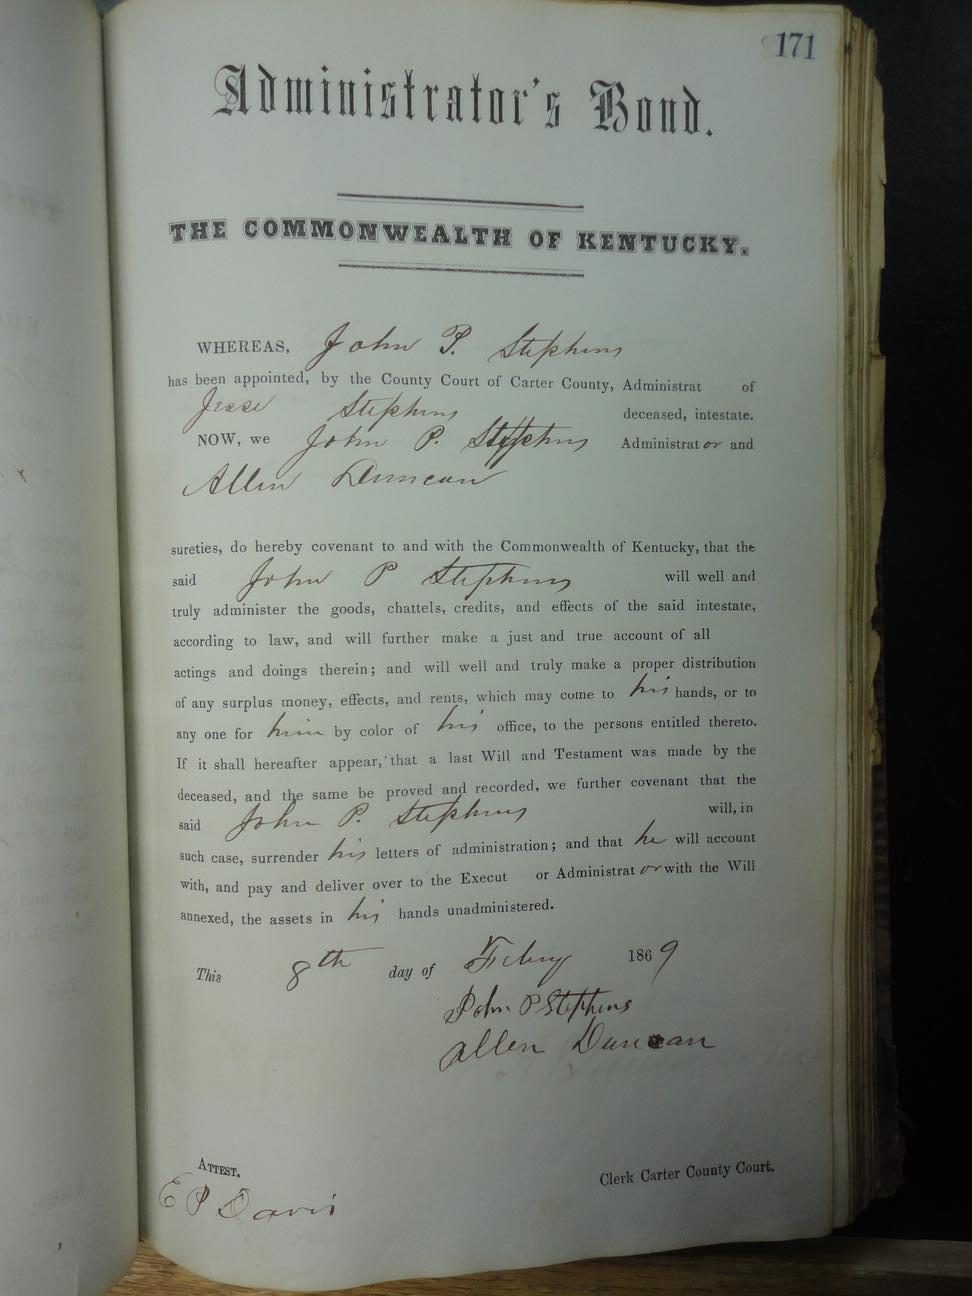 171
Administrator's Bond.
THE COMMONWEALTH OF KENTUCKY.
WHEREAS, John P. Stephens
has been appointed, by the County Court of Carter County, Administrat of
Jesse Stephens deceased, intestate.
NOW, we John P. Stephens Administrator and
Allen Duncan
sureties, do hereby covenant to and with the Commonwealth of Kentucky, that the
said John P Stephens will well and
truly administer the goods, chattels, credits, and effects of the said intestate,
according to law, and will further make a just and true account of all
actings and doings therein; and will well and truly make a proper distribution
of any surplus money, effects, and rents, which may come to his hands, or to
any one for him by color of his office, to the persons entitled thereto.
If it shall hereafter appear, that a last Will and Testament was made by the
deceased, and the same be proved and recorded, we further covenant that the
said John P. Stephens will, in
such case, surrender his letters of administration; and that he will account
with, and pay and deliver over to the Execut or Administrator with the Will
annexed, the assets in his hands unadministered.
This 8th day of Febry 1869
John P Stephens
Allen Duncan
ATTEST.
Clerk Carter County Court.
E P Davis